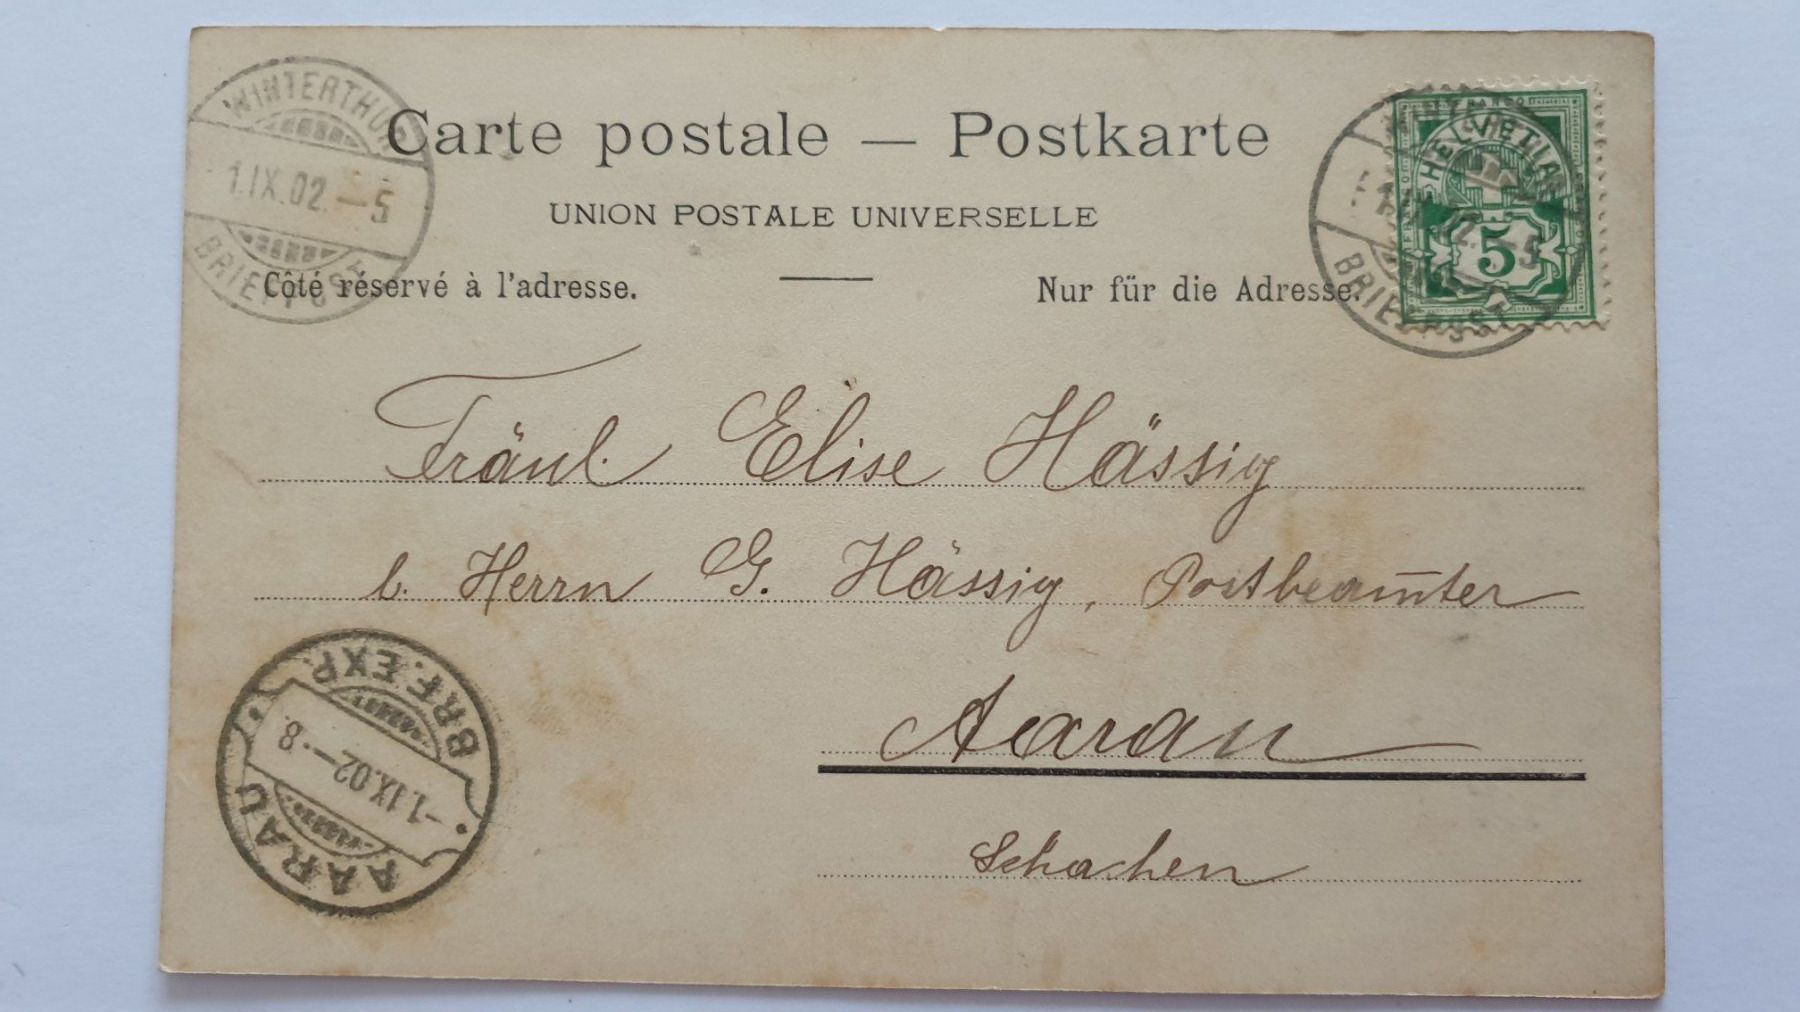 WINTERTHUR
1.IX.02.–5
BRIEFPOST
Carte postale — Postkarte
UNION POSTALE UNIVERSELLE
Côté réservé à l'adresse.
Nur für die Adresse.
FRANCO
HELVETIA
5
BRIEFPOST
Fräul. Elise Hässig
b. Herrn G. Hässig, Postbeam̄ter
Aarau
Schachen
BRF. EXP.
-1.IX.02–·8.
AARAU